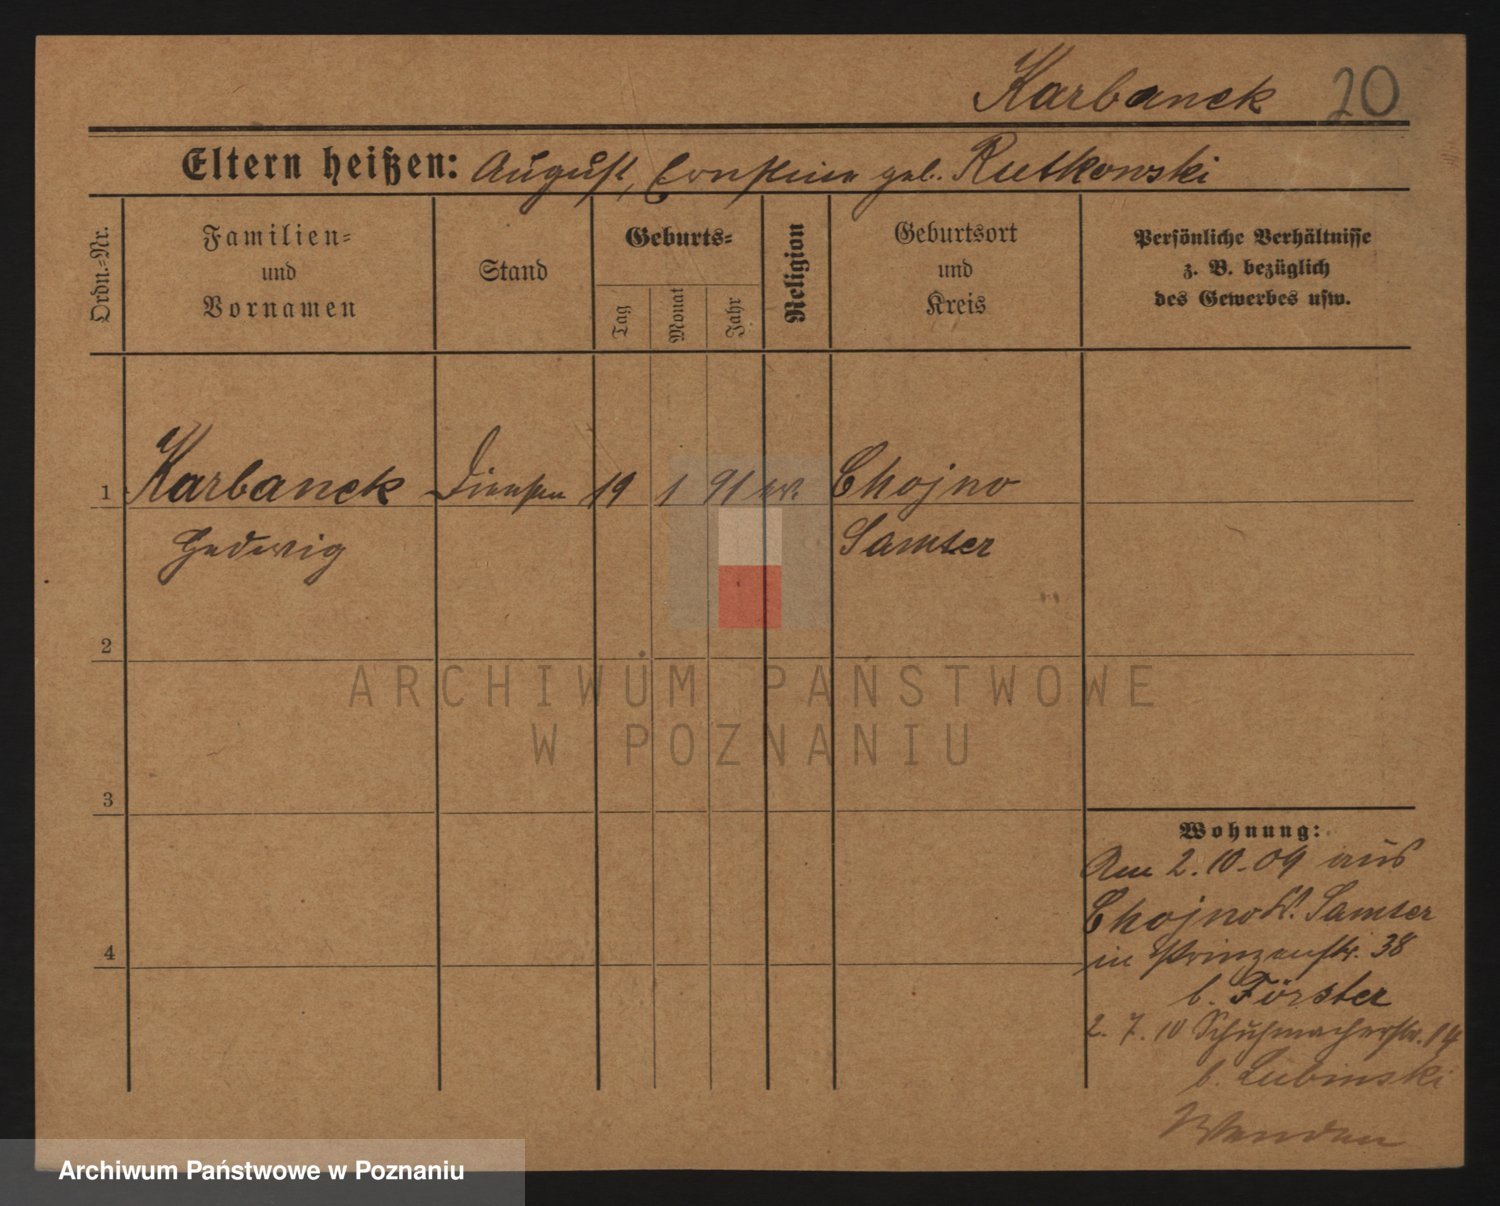 Karbanek 20
Eltern heißen: August, Ernstine geb. Rutkowski
Ordn.-Nr.
Familien-
und
Vornamen
Stand
Geburts-
Tag
Monat
Jahr
Religion
Geburtsort
und
Kreis
Persönliche Verhältnisse
z. B. bezüglich
des Gewerbes usw.
1 Karbanek 19 1 91 ev. Chojno
Hedwig Samter
2
3
4
Wohnung:
Am 2.10.09 aus
Chojno K. Samter
in Prinzenstr. 38
b. Förster
2.7.10 Schuhmacherstr. 14
b. Lubinski
Wenden
ARCHIWUM PAŃSTWOWE
W POZNANIU
Archiwum Państwowe w Poznaniu